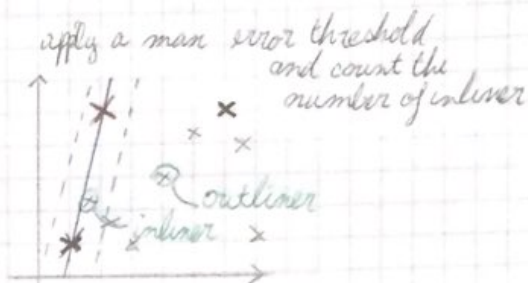 apply a man error threshold
and count the
number of inliner
outliner
inliner